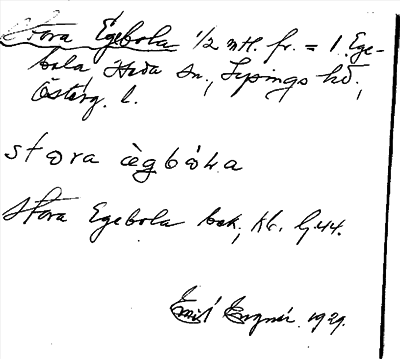 Stora Egebola 1/2 mtl. fr. = 1. Ege-
bola Heda sn., Lysings hd.,
Österg. l.
stora ägbola
Stora Egebola bok, kb. 1744.
Emil 1929.